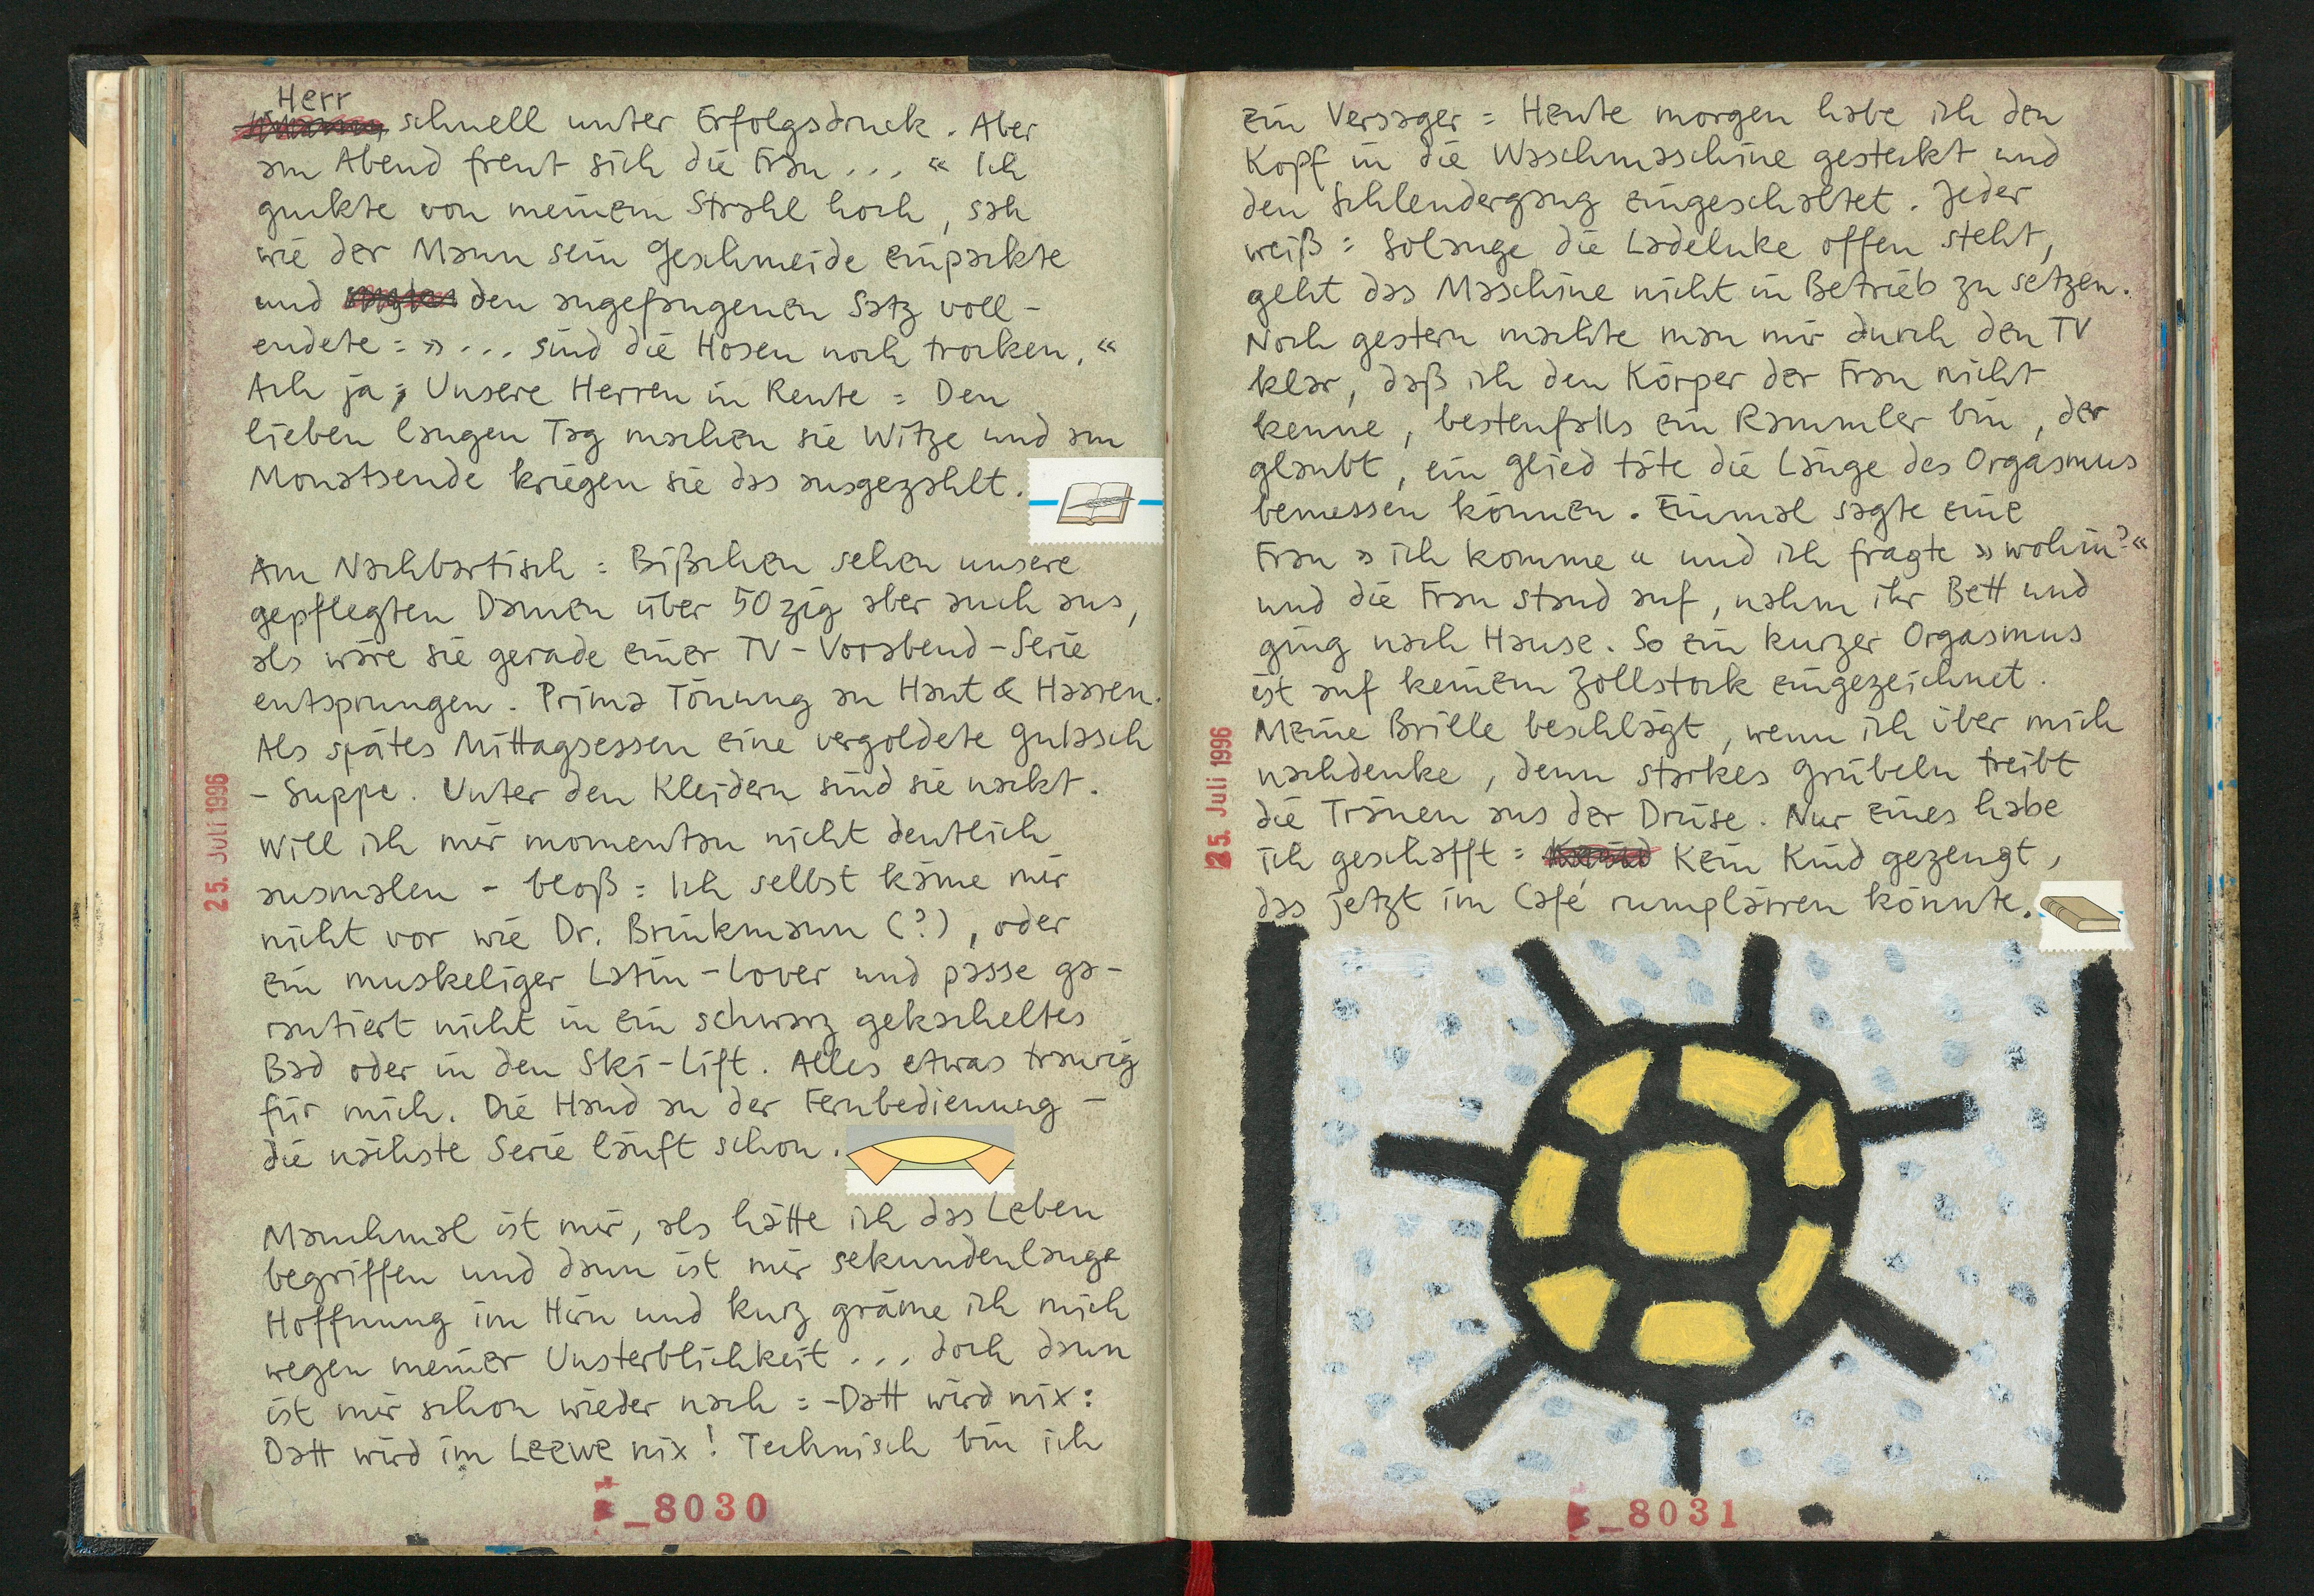 Herr
schnell unter Erfolgsdruck. Aber
am Abend freut sich die Frau ... « Ich
guckte von meinem Strahl hoch, sah
wie der Mann sein Geschmeide einpackte
und den angefangenen Satz voll-
endete = » ... sind die Hosen noch trocken. «
Ach ja; Unsere Herren in Rente = Den
lieben langen Tag machen sie Witze und am
Monatsende kriegen sie das ausgezahlt.
Am Nachbartisch = Bißchen sehen unsere
gepflegten Damen über 50zig aber auch aus,
als wäre sie gerade einer TV-Vorabend-Serie
entsprungen. Prima Tönung an Haut & Haaren.
Als spätes Mittagsessen eine vergoldete Gulasch
- Suppe. Unter den Kleidern sind sie nackt.
Will ich mir momentan nicht deutlich
ausmalen - bloß = Ich selbst käme mir
nicht vor wie Dr. Brinkmann (?), oder
ein muskeliger Latin-Lover und passe ga-
rantiert nicht in ein schwarz gekacheltes
Bad oder in den Ski-Lift. Alles etwas traurig
für mich. Die Hand an der Fernbedienung -
die nächste Serie läuft schon.
Manchmal ist mir, als hätte ich das Leben
begriffen und dann ist mir sekundenlange
Hoffnung im Hirn und kurz gräme ich mich
wegen meiner Unsterblichkeit ... doch dann
ist mir schon wieder nach = -Datt wird nix:
Datt wird im Leewe nix! Technisch bin ich
25. Juli 1996
_8030
ein Versager = Heute morgen habe ich den
Kopf in die Waschmaschine gesteckt und
den Schleudergang eingeschaltet. Jeder
weiß = Solange die Ladeluke offen steht,
geht das Maschine nicht in Betrieb zu setzen.
Noch gestern machte man mir durch den TV
klar, daß ich den Körper der Frau nicht
kenne, bestenfalls ein Rammler bin, der
glaubt, ein Glied täte die Länge des Orgasmus
bemessen können. Einmal sagte eine
Frau » ich komme « und ich fragte » wohin? «
und die Frau stand auf, nahm ihr Bett und
ging nach Hause. So ein kurzer Orgasmus
ist auf keinem Zollstock eingezeichnet.
Meine Brille beschlägt, wenn ich über mich
nachdenke, denn starkes Grübeln treibt
die Tränen aus der Drüse. Nur eines habe
ich geschafft = Kein Kind gezeugt,
das jetzt im Café rumplärren könnte.
25. Juli 1996
_8031